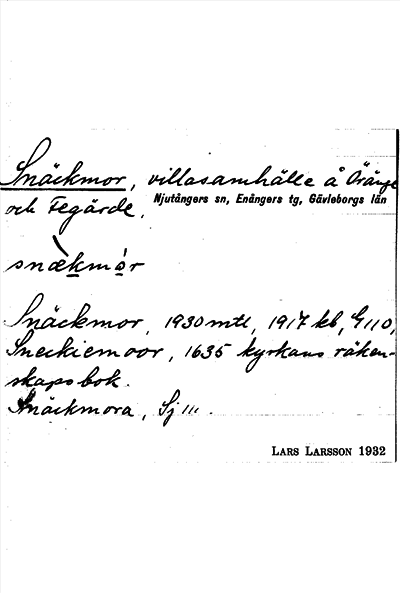 Snäckmor, villasamhälle å Öränge
Njutångers sn, Enångers tg, Gävleborgs län
och Fegärde.
snækmór
Snäckmor, 1930 mtl, 1917 kb, G 110,
Sneckiemoor, 1635 kyrkans räken-
skapsbok.
Snäckmora, Sj 111.
LARS LARSSON 1932